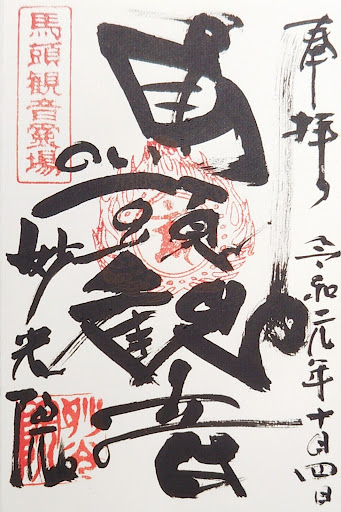 奉拝
令和元年十月四日
馬頭観音
馬頭観音霊場
妙光院